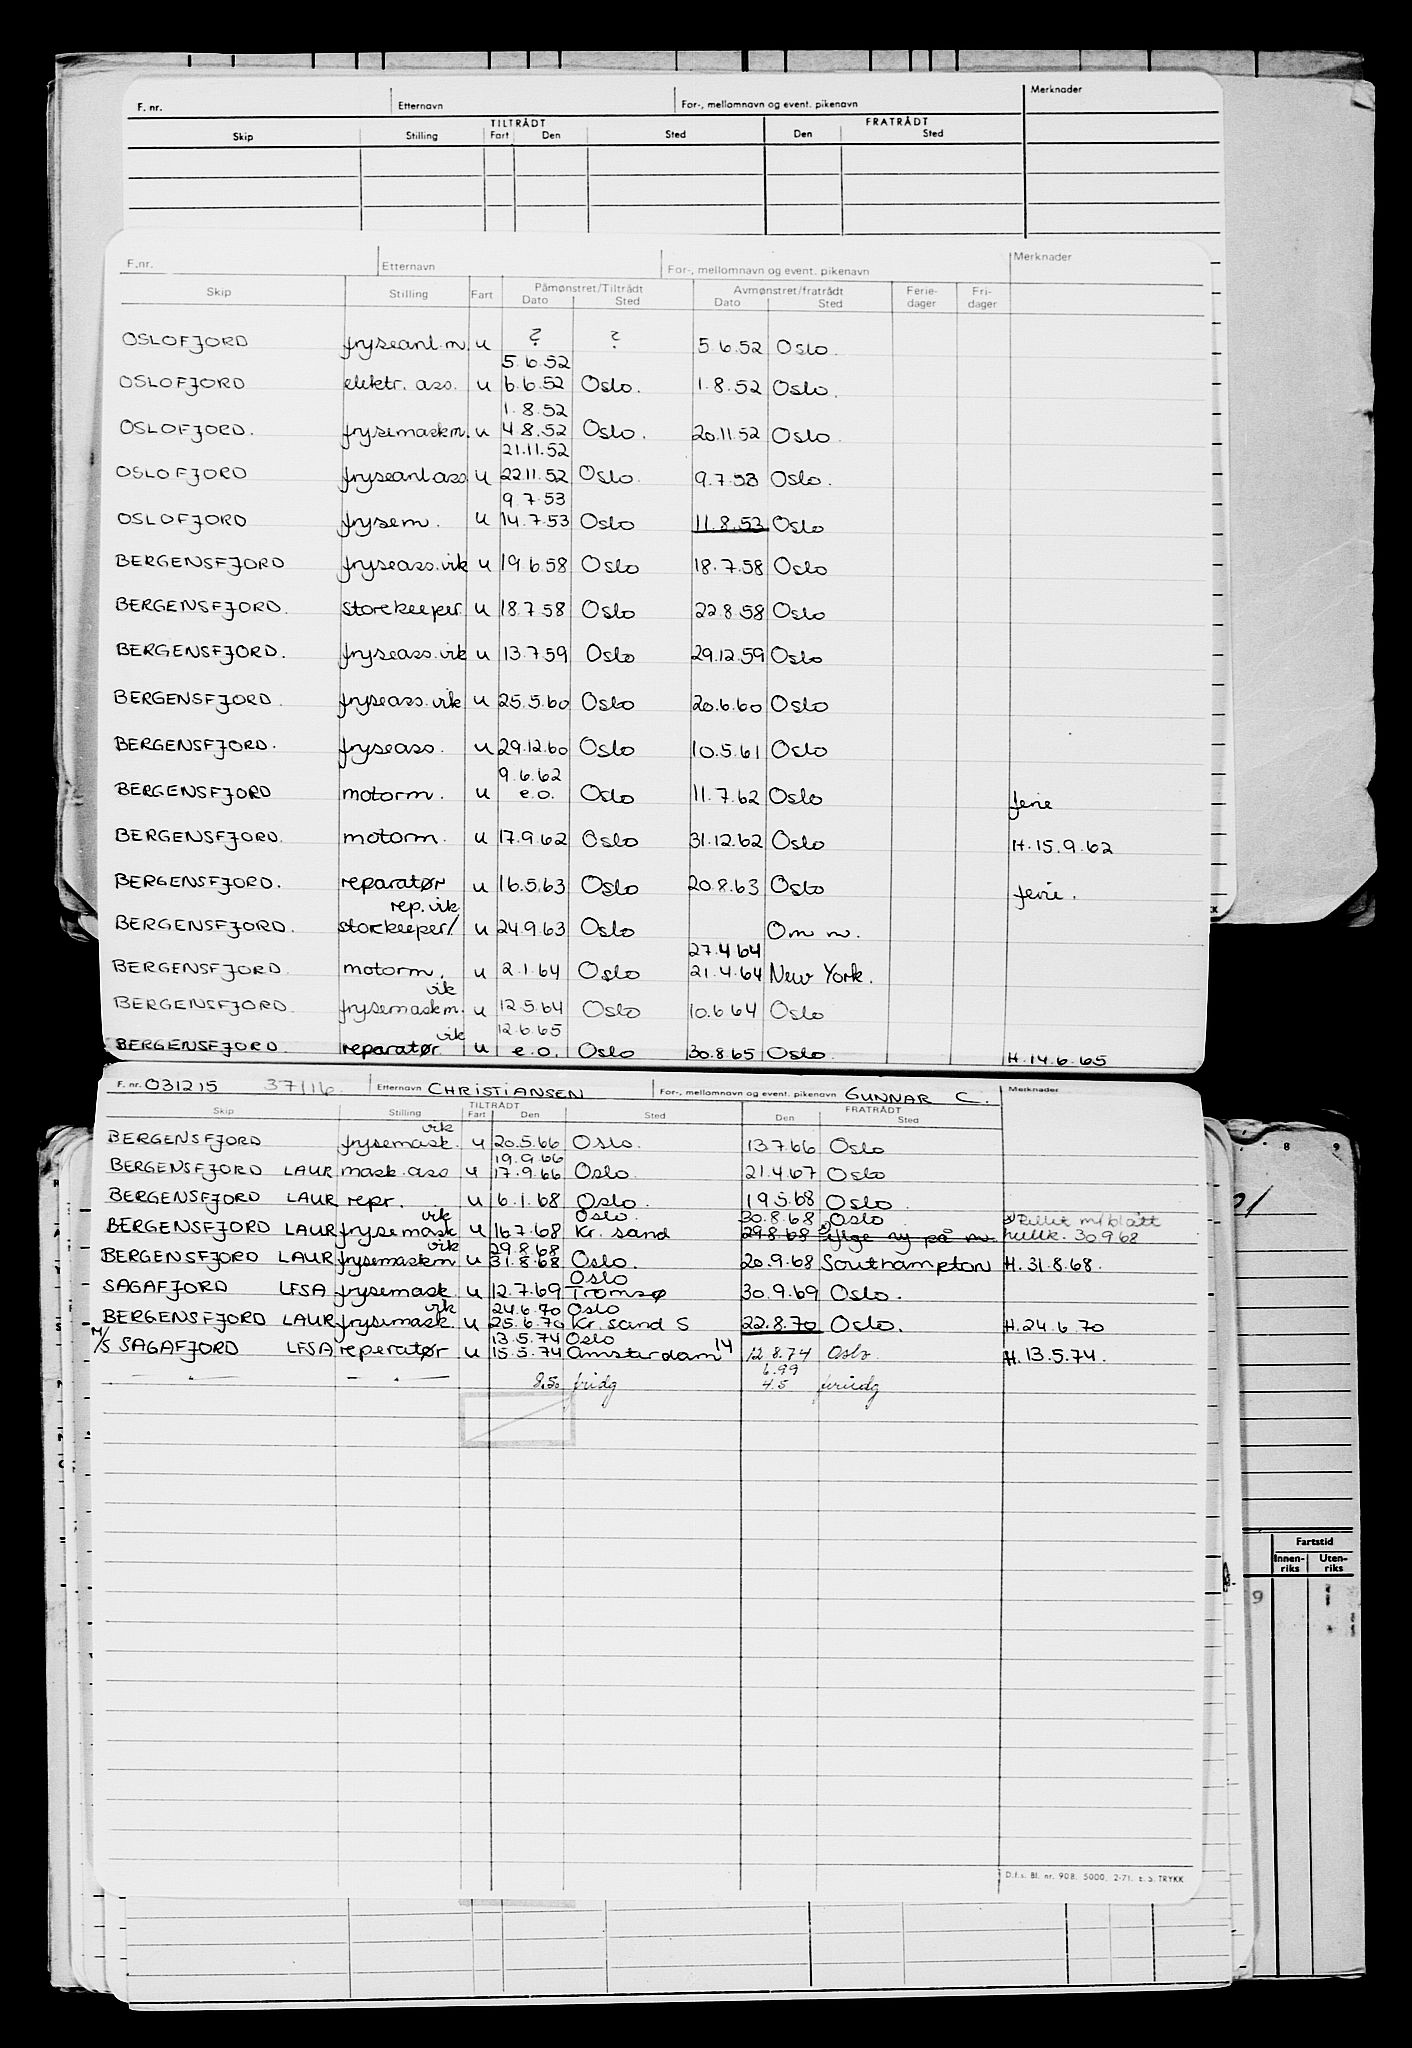 F. nr. Etternavn For-, mellomnavn og event. pikenavn Merknader
TILTRÅDT FRATRÅDT
Skip Stilling Fart Den Sted Den Sted
F.nr. Etternavn For-, mellomnavn og event. pikenavn Merknader
Skip Stilling Fart Påmønstret/Tiltrådt Avmønstret/fratrådt Ferie- Fri-
Dato Sted Dato Sted dager dager
OSLOFJORD fryseanl.m. u ? ? 5.6.52 Oslo.
5.6.52
OSLOFJORD elektr. ass. u 6.6.52 Oslo. 1.8.52 Oslo.
1.8.52
OSLOFJORD. frysemaskm. u 4.8.52 Oslo. 20.11.52 Oslo.
21.11.52
OSLOFJORD fryseanlass u 22.11.52 Oslo. 9.7.53 Oslo.
9.7.53
OSLOFJORD frysem. u 14.7.53 Oslo 11.8.53 Oslo
BERGENSFJORD fryseass.vik u 19.6.58 Oslo 18.7.58 Oslo
BERGENSFJORD. storekeeper u 18.7.58 Oslo 22.8.58 Oslo
BERGENSFJORD. fryseass.vik u 13.7.59 Oslo 29.12.59 Oslo
BERGENSFJORD. fryseass.vik u 25.5.60 Oslo 20.6.60 Oslo
BERGENSFJORD. fryseass. u 29.12.60 Oslo 10.5.61 Oslo
9.6.62
BERGENSFJORD motorm. u e.o. Oslo 11.7.62 Oslo ferie
BERGENSFJORD. motorm. u 17.9.62 Oslo 31.12.62 Oslo H.15.9.62
BERGENSFJORD. reparatør u 16.5.63 Oslo 20.8.63 Oslo ferie.
rep.vik
BERGENSFJORD. storekeeper/ u 24.9.63 Oslo Om m.
27.4.64
BERGENSFJORD. motorm. u 2.1.64 Oslo 21.4.64 New York.
vik
BERGENSFJORD. frysemaskm. u 12.5.64 Oslo 10.6.64 Oslo
vik 12.6.65
BERGENSFJORD. reparatør u e.o. Oslo 30.8.65 Oslo. H.14.6.65
F. nr. 031215 37116 Etternavn CHRISTIANSEN For-, mellomnavn og event. pikenavn GUNNAR C. Merknader
TILTRÅDT FRATRÅDT
Skip Stilling Fart Den Sted Den Sted
vik
BERGENSFJORD frysemask. u 20.5.66 Oslo. 13.7.66 Oslo
19.9.66
BERGENSFJORD LAUR mask.ass u 17.9.66 Oslo. 21.4.67 Oslo
BERGENSFJORD LAUR repr. u 6.1.68 Oslo. 19.5.68 Oslo.
vik Oslo. 30.8.68 Oslo m/blått
BERGENSFJORD LAUR frysemask u 16.7.68 Kr. sand 29.8.68 30968
vik 29.8.68
BERGENSFJORD LAUR frysemaskm u 31.8.68 Oslo. 20.9.68 Southampton H.31.8.68.
Oslo
SAGAFJORD LFSA frysemask. u 12.7.69 Tromsø 30.9.69 Oslo.
vik 24.6.70 Oslo
BERGENSFJORD LAUR frysemask. u 25.6.70 Kr. sand S 22.8.70 Oslo. H.24.6.70
13.5.74 Oslo
M/S SAGAFJORD LFSA reperatør u 15.5.74 Amsterdam 14 12.8.74 Oslo. H.13.5.74.
6.99
— " — — " — 8.50 fridg 4.5 feriedg
D.f.s. Bl. nr. 908. 5000. 2-71. E. S. TRYKK
8 9
Fartstid
Innen- Uten-
riks riks
9